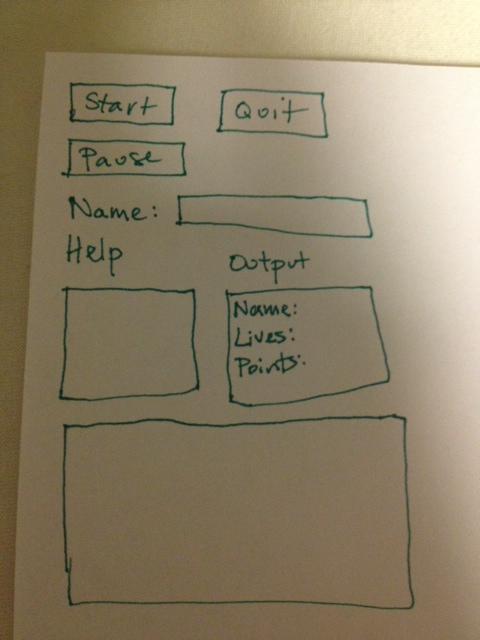 Start Quit
Pause
Name:
Help
Output
Name:
Lives:
Points: